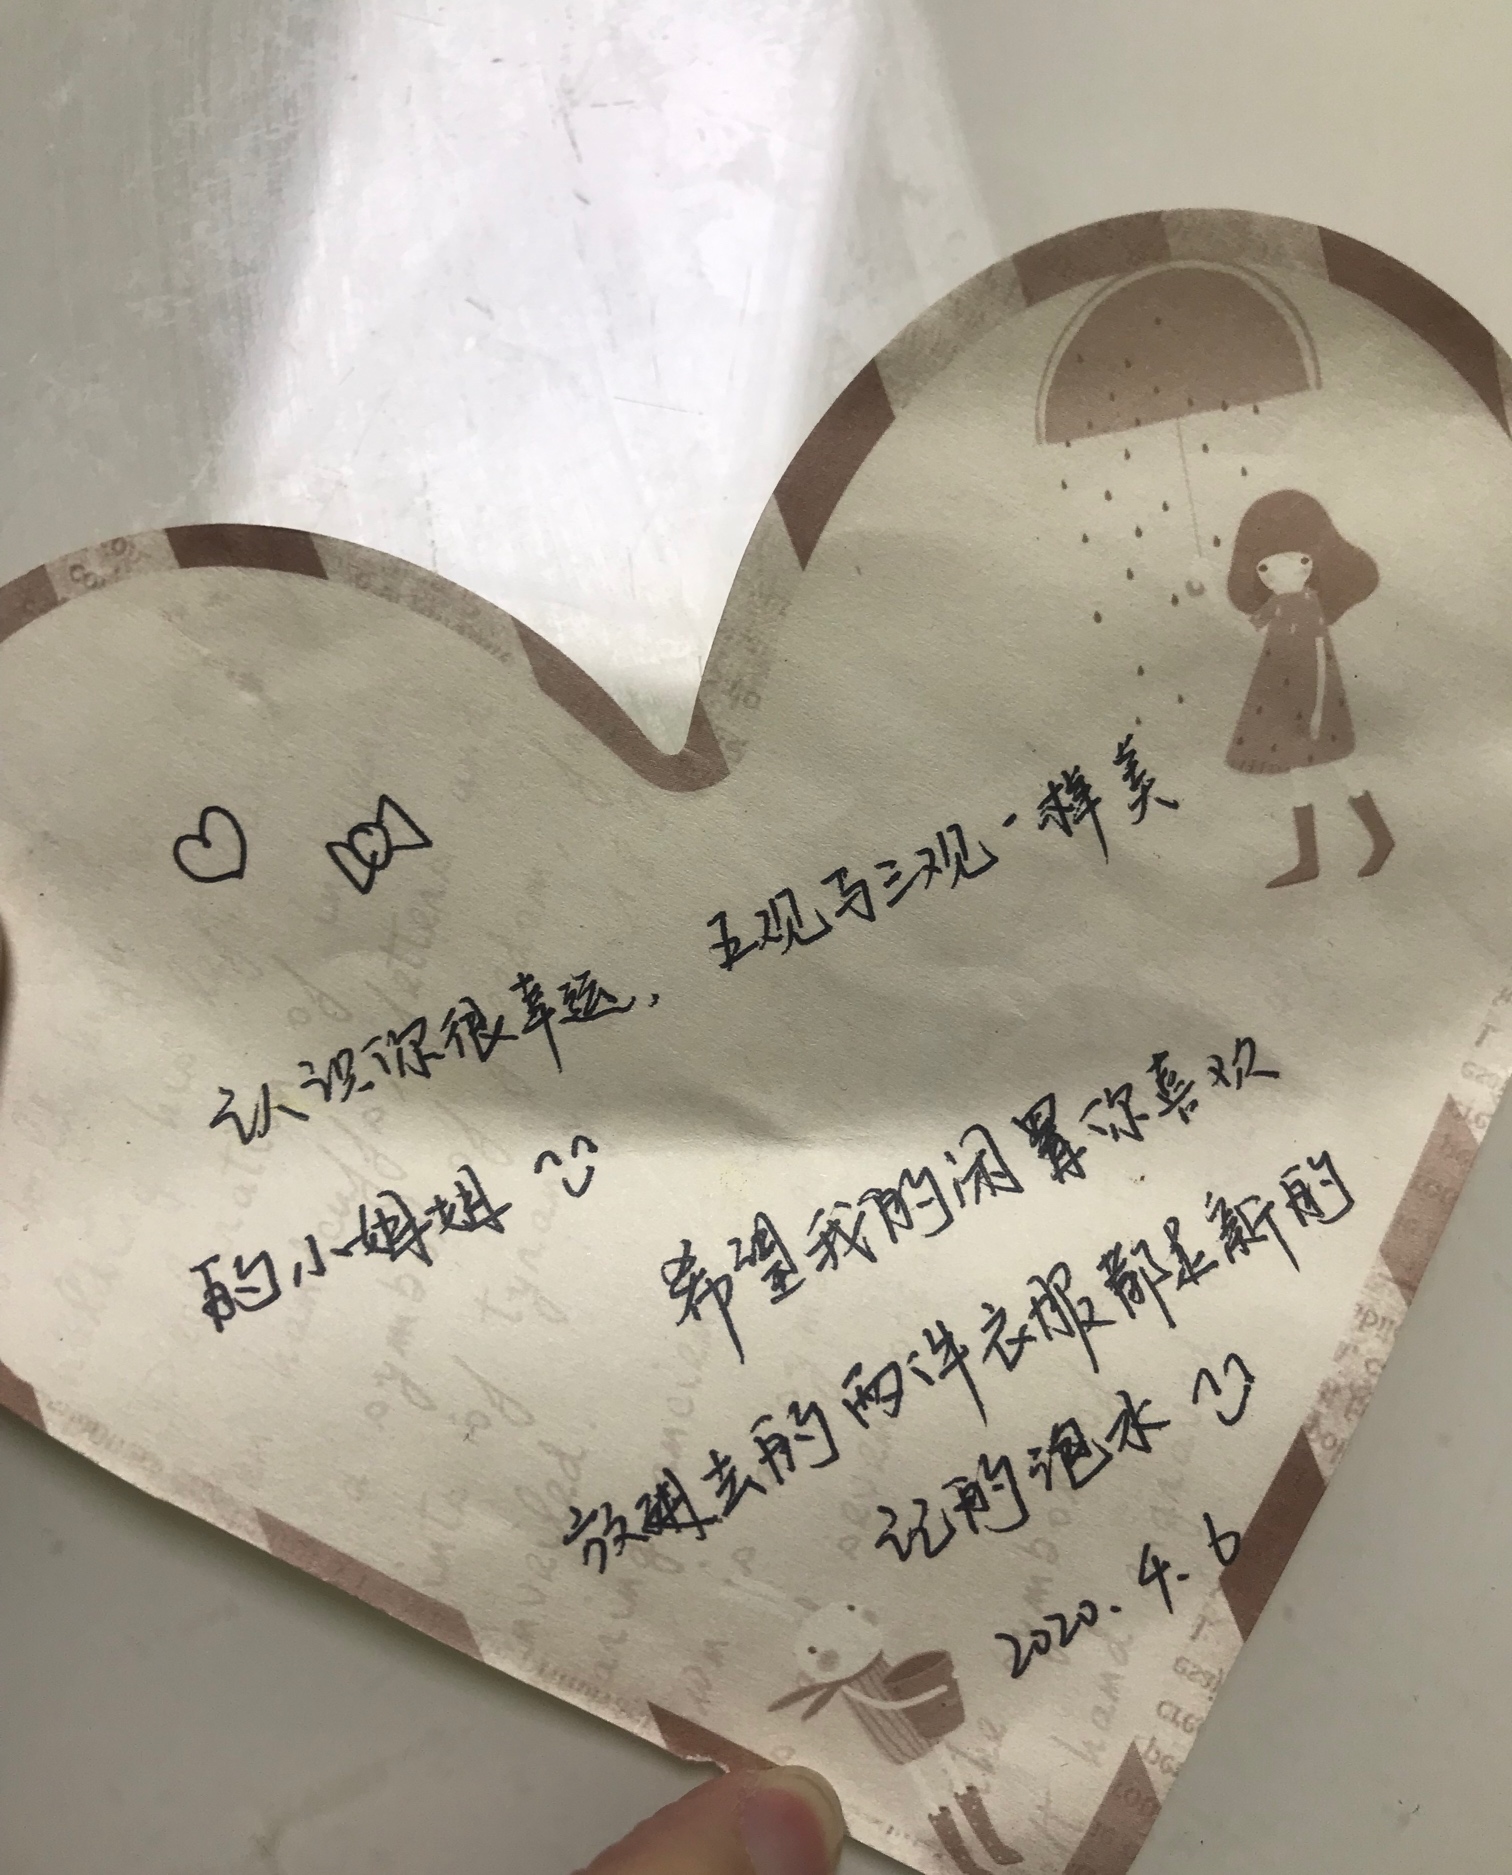 认识你很幸运，五观与三观一样美
的小姐姐
希望我的闲置你喜欢
放进去的两件衣服都是新的
记的泡水
2020.4.6